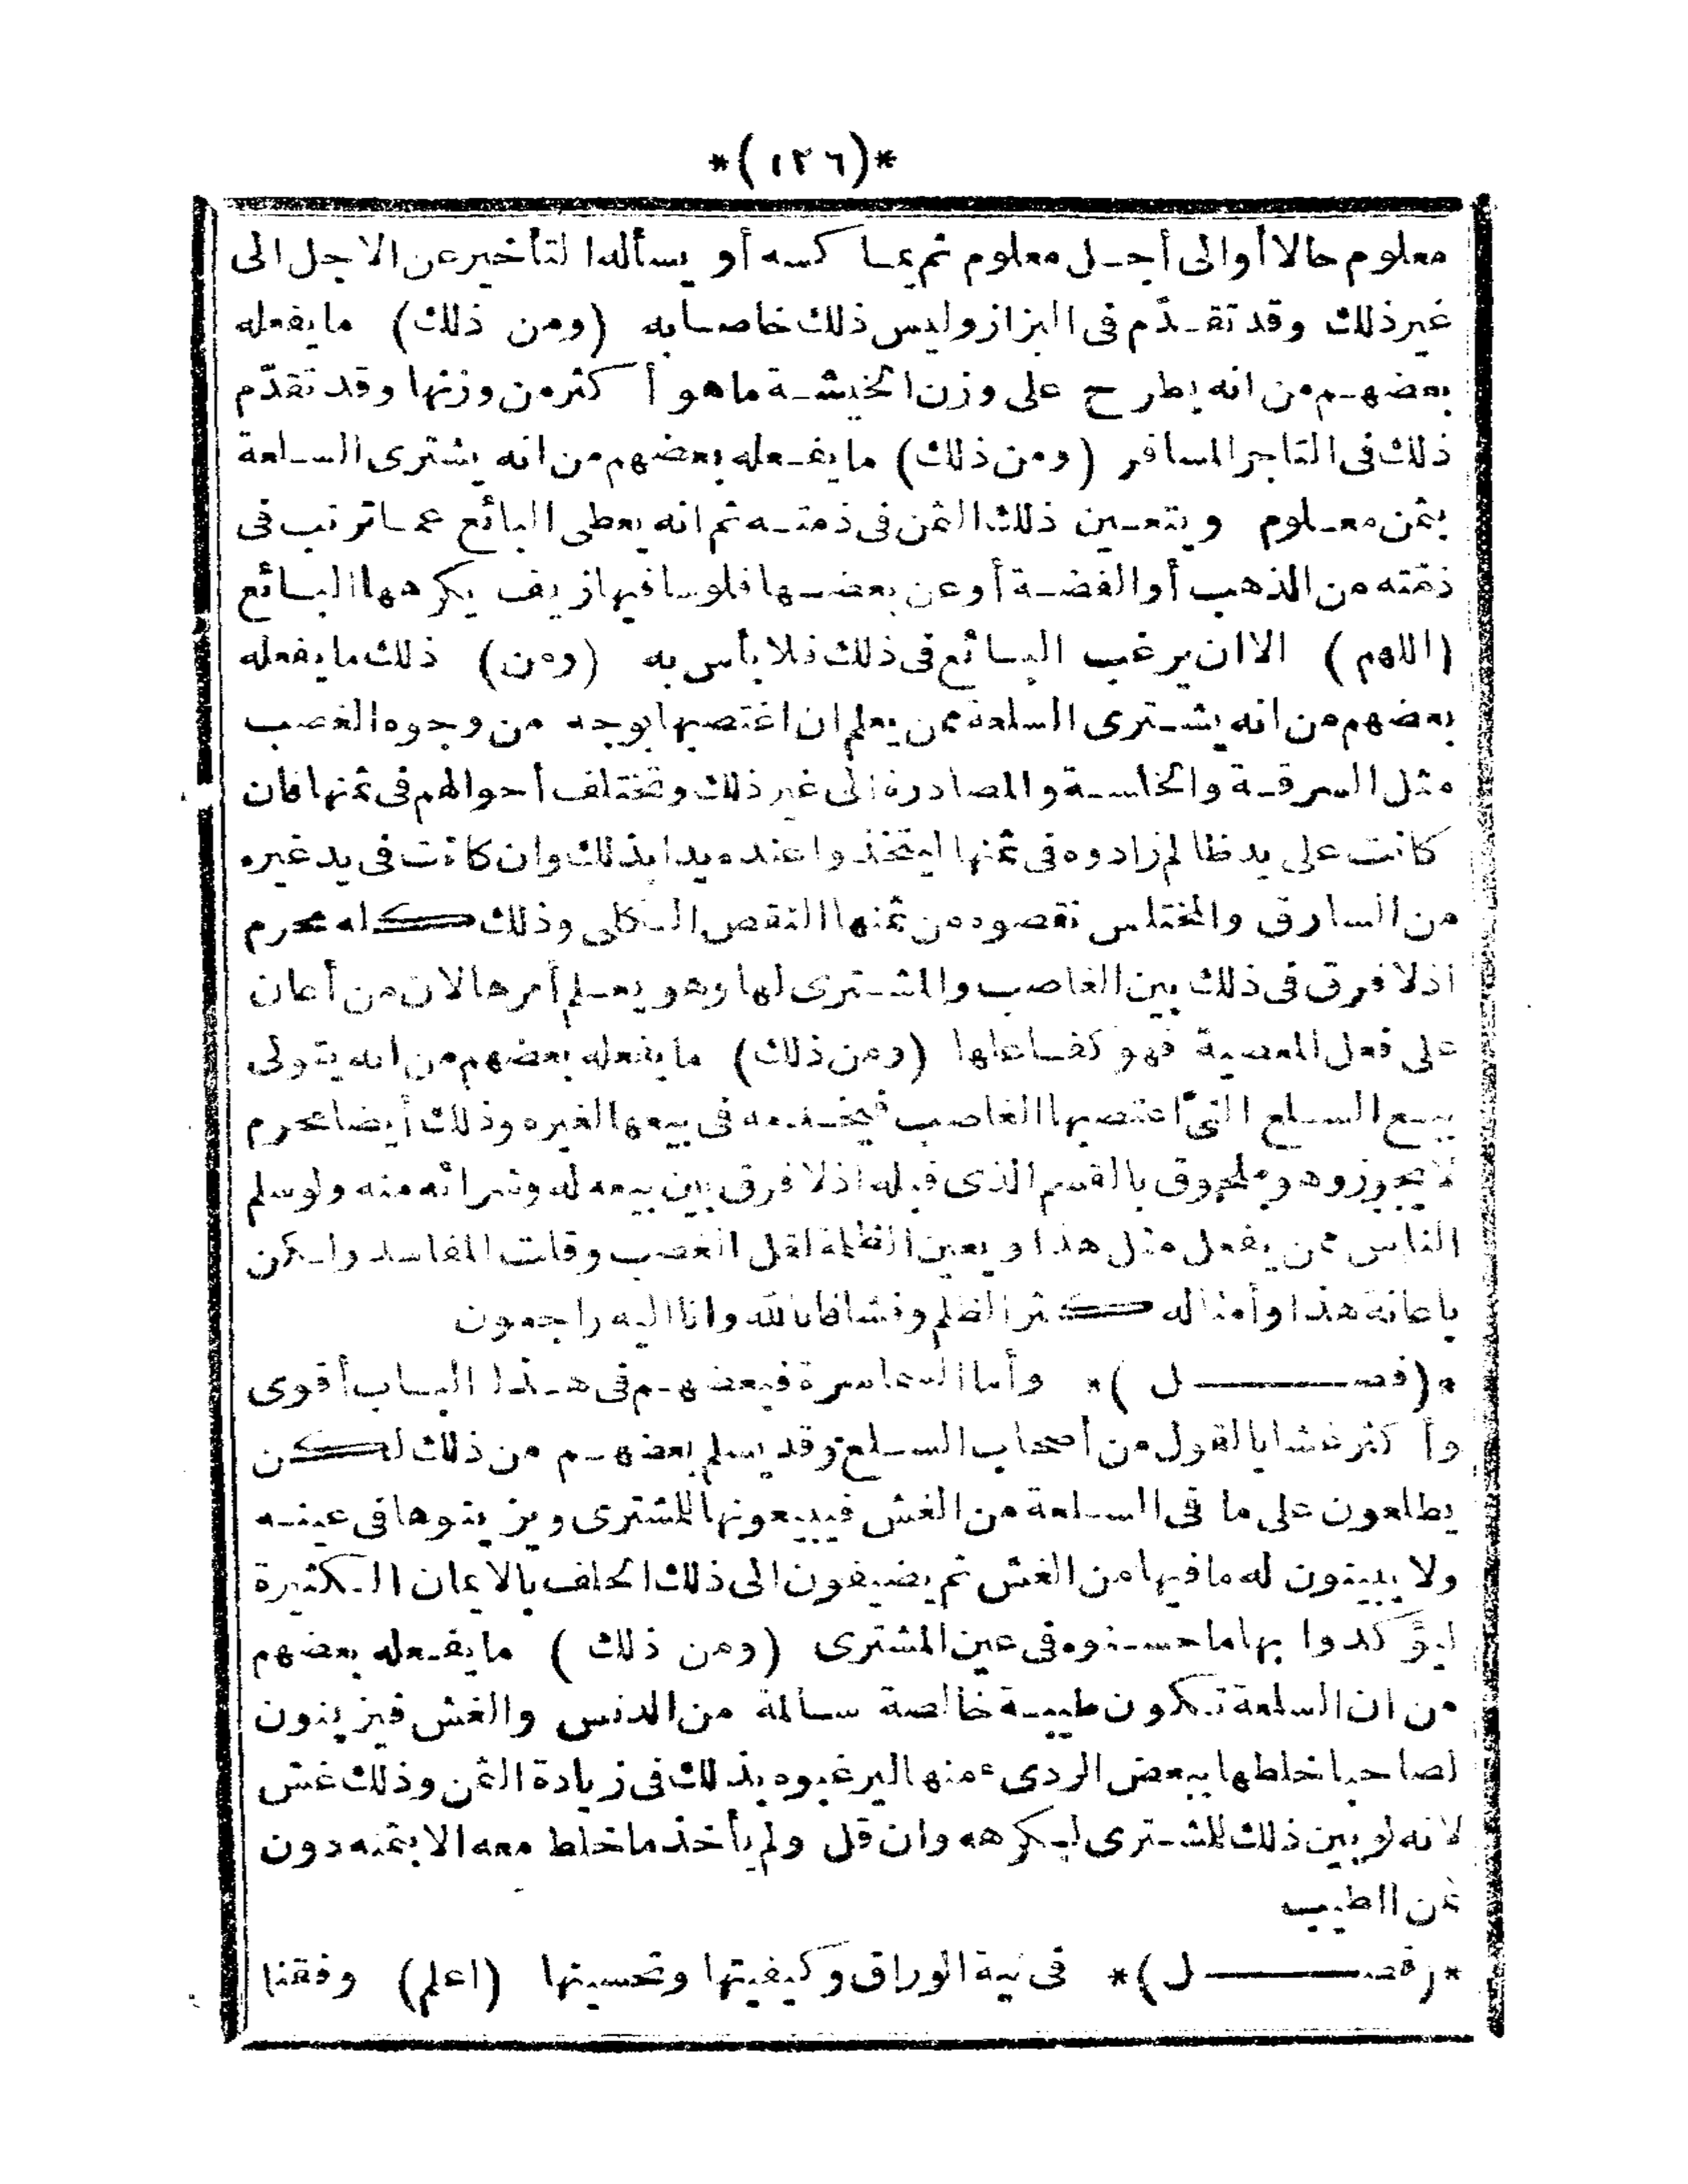 *(١٢٦)*
معلوم حالا أو الى أجل معلوم ثم يماكسه أو يسأله التأخير عن الاجل الى
غير ذلك وقد تقدّم فى البزاز وليس ذلك خاصا به (ومن ذلك) ما يفعله
بعضهم من انه يطرح على وزن الخيشة ما هو أكثر من وزنها وقد تقدّم
ذلك فى التاجر المسافر (ومن ذلك) ما يفعله بعضهم من انه يشترى السلعة
بثمن معلوم ويتعين ذلك الثمن فى ذمته ثم انه يعطى البائع عما ترتب فى
ذمّته من الذهب أو الفضة أو عن بعضها فلوسا فيها زيف يكرهها البائع
(اللهم) الا ان يرغب البائع فى ذلك فلا بأس به (ومن) ذلك ما يفعله
بعضهم من انه يشترى السلعة ممن يعلم ان اغتصبها بوجه من وجوه الغصب
مثل السرقة والخلسة والمصادرة الى غير ذلك وتختلف أحوالهم فى ثمنها فان
كانت على يد ظالم زادوه فى ثمنها ليتخذوا عنده يدا بذلك وان كانت فى يد غيره
من السارق والمختلس نقصوه من ثمنها النقص الكلى وذلك كله محرم
اذ لا فرق فى ذلك بين الغاصب والمشترى لها وهو يعلم أمرها لان من أعان
على فعل المعصية فهو كفاعلها (ومن ذلك) ما يفعله بعضهم من انه يتولى
بيع السلع التى اغتصبها الغاصب فيخدمه فى بيعها لغيره وذلك أيضا محرم
لا يجوز وهو ملحوق بالقسم الذى قبله اذ لا فرق بين بيعه له وشرائه منه ولو سلم
الناس ممن يفعل مثل هذا ويعين الظلمة لقل الغصب وقلت المفاسد ولكن
باعانة هذا وأمثاله كثر الظلم وفشا فانا لله وانا اليه راجعون
*(فصل)* وأما السماسرة فبعضهم فى هذا الباب أقوى
وأكثر غشا بالقول من أصحاب السلع وقد يسلم بعضهم من ذلك لكن
يطلعون على ما فى السلعة من الغش فيبيعونها للمشترى ويزينوها فى عينه
ولا يبينون له ما فيها من الغش ثم يضيفون الى ذلك الحلف بالايمان الكثيرة
ليؤكدوا بها ما حسنوه فى عين المشترى (ومن ذلك) ما يفعله بعضهم
من ان السلعة تكون طيبة خالصة سالمة من الدنس والغش فيزينون
لصاحبها خلطها ببعض الردىء منها ليرغبوه بذلك فى زيادة الثمن وذلك غش
لانه لو بين ذلك للمشترى ليكرهه وان قل ولم يأخذ ما خلط معه الا بثمنه دون
ثمن الطيب
*(فصل)* فى نية الوراق وكيفيتها وتحسينها (اعلم) وفقنا